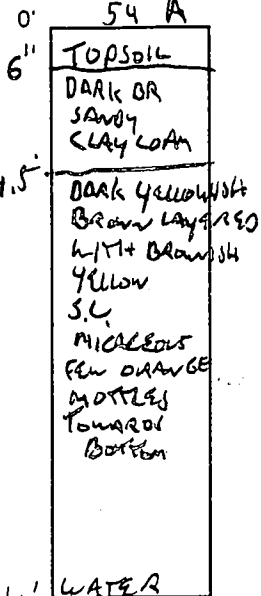 0' 54 A
6" TOPSOIL
DARK BR
SANDY
CLAY LOAM
DARK YELLOWISH
BROWN LAYERED
WITH BROWNISH
YELLOW
S.L.
MICACEOUS
FEW ORANGE
MOTTLES
TOWARDS
BOTTOM
WATER